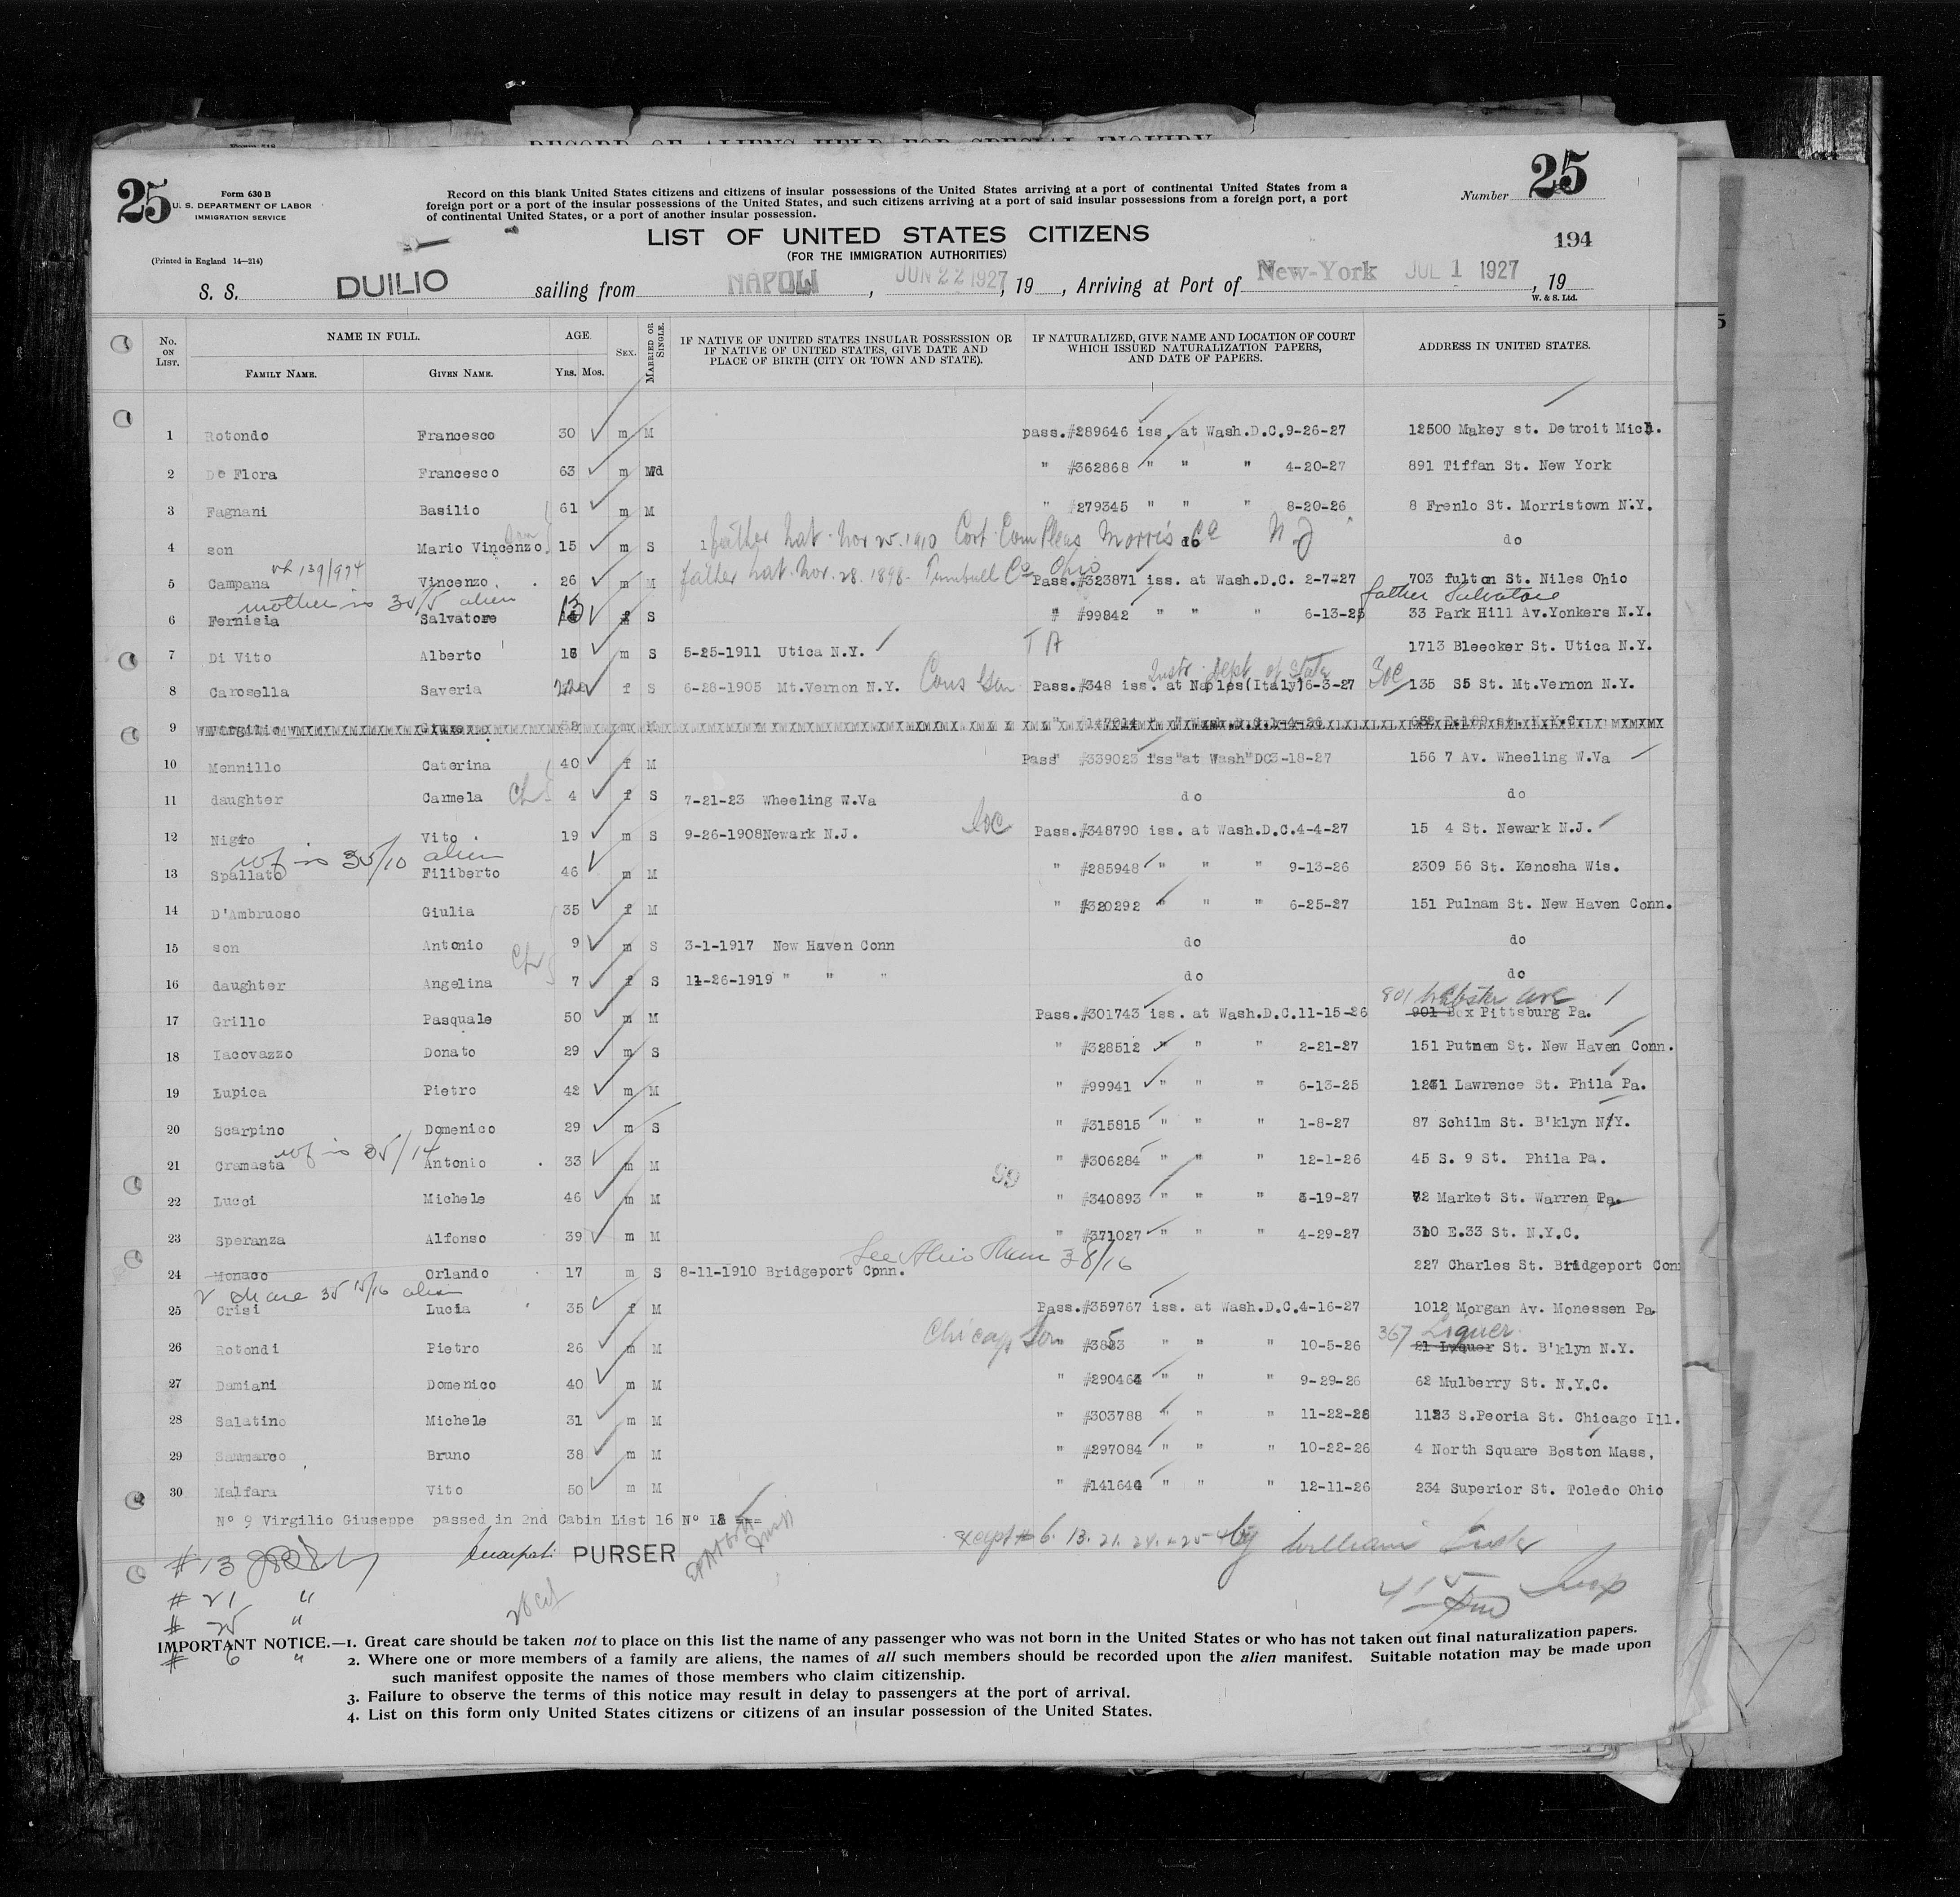 RECORD OF ALIENS HELD FOR SPECIAL INQUIRY
25 Form 630 B
U. S. DEPARTMENT OF LABOR
IMMIGRATION SERVICE
Record on this blank United States citizens and citizens of insular possessions of the United States arriving at a port of continental United States from a
foreign port or a port of the insular possessions of the United States, and such citizens arriving at a port of said insular possessions from a foreign port, a port
of continental United States, or a port of another insular possession.
Number 25
LIST OF UNITED STATES CITIZENS
(FOR THE IMMIGRATION AUTHORITIES)
194
(Printed in England 14—214)
S. S. DUILIO sailing from NAPOLI, JUN 22 1927, 19 , Arriving at Port of New-York JUL 1 1927, 19
W. & S. Ltd.
No. ON LIST. NAME IN FULL. FAMILY NAME. GIVEN NAME. AGE. YRS. MOS. SEX. MARRIED OR SINGLE. IF NATIVE OF UNITED STATES INSULAR POSSESSION OR IF NATIVE OF UNITED STATES, GIVE DATE AND PLACE OF BIRTH (CITY OR TOWN AND STATE). IF NATURALIZED, GIVE NAME AND LOCATION OF COURT WHICH ISSUED NATURALIZATION PAPERS, AND DATE OF PAPERS. ADDRESS IN UNITED STATES.
1 Rotondo Francesco 30 m M pass.#289646 iss. at Wash.D.C.9-26-27 12500 Makey st. Detroit Mich.
2 De Flora Francesco 63 m Wd " #362868 " " " 4-20-27 891 Tiffan St. New York
3 Fagnani Basilio 61 m M " #279345 " " " 8-20-26 8 Frenlo St. Morristown N.Y.
4 son Mario Vincenzo 15 m S father nat. Nov 25. 1910 Cort Com Pleas Morris Co N J do do
vl 139/974 father nat. Nov. 28. 1898. Trumbull Co Ohio
5 Campana Vincenzo 26 m M Pass.#323871 iss. at Wash.D.C. 2-7-27 703 fulton St. Niles Ohio
mother is 35/5 alien father Salvatore
6 Fernisia Salvatore 13 f S " #99842 " " " 6-13-25 33 Park Hill Av.Yonkers N.Y.
7 Di Vito Alberto 16 m S 5-25-1911 Utica N.Y. 1713 Bleecker St. Utica N.Y.
Instr. Dept of State
8 Carosella Saveria 22 f S 6-28-1905 Mt.Vernon N.Y. Cons Gen Pass.#348 iss. at Naples(Italy)6-3-27 135 S5 St. Mt.Vernon N.Y.
9 Virgilio
10 Mennillo Caterina 40 f M Pass" #339023 iss"at Wash"DC3-18-27 156 7 Av. Wheeling W.Va
11 daughter Carmela Ch 4 f S 7-21-23 Wheeling W.Va do do
12 Nigro Vito 19 m S 9-26-1908Newark N.J. Pass.#348790 iss. at Wash.D.C.4-4-27 15 4 St. Newark N.J.
wf is 35/10 alien
13 Spallato Filiberto 46 m M " #285948 " " " 9-13-26 2309 56 St. Kenosha Wis.
14 D'Ambruoso Giulia 35 f M " #320292 " " " 6-25-27 151 Pulnam St. New Haven Conn.
15 son Antonio 9 m S 3-1-1917 New Haven Conn do do
Ch
16 daughter Angelina 7 f S 11-26-1919 " " " do do
801 Webster ave
17 Grillo Pasquale 50 m M Pass.#301743 iss. at Wash.D.C.11-15-26 901 Box Pittsburg Pa.
18 Iacovazzo Donato 29 m S " #328512 " " " 2-21-27 151 Putnem St. New Haven Conn.
19 Lupica Pietro 42 m M " #99941 " " " 6-13-25 1231 Lawrence St. Phila Pa.
20 Scarpino Domenico 29 m S " #315815 " " " 1-8-27 87 Schilm St. B'klyn N.Y.
wf is 35/14
21 Cramasta Antonio 33 m M " #306284 " " " 12-1-26 45 S. 9 St. Phila Pa.
99
22 Lucci Michele 46 m M " #340893 " " " 3-19-27 72 Market St. Warren Pa.
23 Speranza Alfonso 39 m M " #371027 " " " 4-29-27 310 E.33 St. N.Y.C.
See Alien Man 38/16
24 Monaco Orlando 17 m S 8-11-1910 Bridgeport Conn. 227 Charles St. Bridgeport Con
35 15/16 alien
25 Crisi Lucia 35 f M Pass.#359767 iss. at Wash.D.C.4-16-27 1012 Morgan Av. Monessen Pa.
Chicago 367 Luquer
26 Rotondi Pietro 26 m M " #3853 " " " 10-5-26 21 Luquer St. B'klyn N.Y.
27 Damiani Domenico 40 m M " #290464 " " " 9-29-26 62 Mulberry St. N.Y.C.
28 Salatino Michele 31 m M " #303788 " " " 11-22-26 1123 S.Peoria St. Chicago Ill.
29 Sanmarco Bruno 38 m M " #297084 " " " 10-22-26 4 North Square Boston Mass.
30 Malfara Vito 50 m M " #141644 " " " 12-11-26 234 Superior St. Toledo Ohio
Nº 9 Virgilio Giuseppe passed in 2nd Cabin List 16 Nº 18
PURSER except # 6. 13. 21. 24. + 25 by William
# 13
# 21 "
# 25 "
# 6 "
28 cit
Insp
IMPORTANT NOTICE.—1. Great care should be taken not to place on this list the name of any passenger who was not born in the United States or who has not taken out final naturalization papers.
2. Where one or more members of a family are aliens, the names of all such members should be recorded upon the alien manifest. Suitable notation may be made upon
such manifest opposite the names of those members who claim citizenship.
3. Failure to observe the terms of this notice may result in delay to passengers at the port of arrival.
4. List on this form only United States citizens or citizens of an insular possession of the United States.